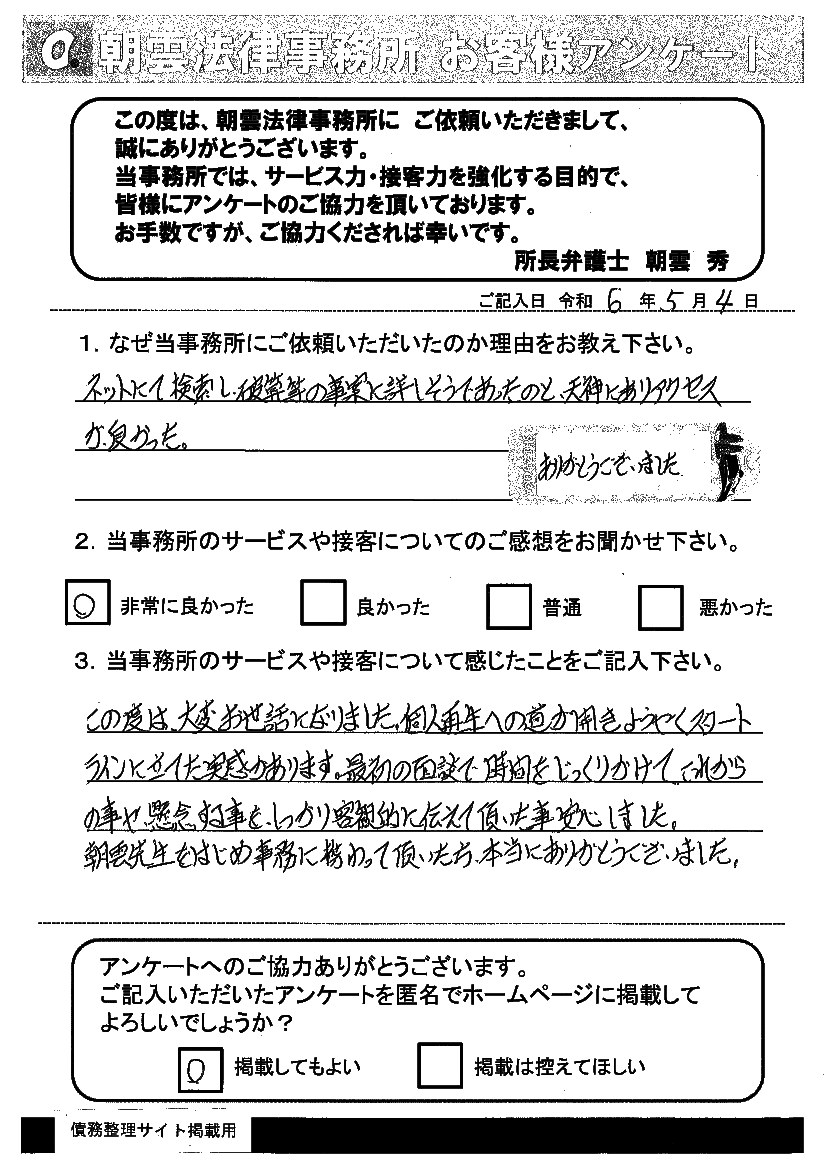 Q. 朝雲法律事務所 お客様アンケート
この度は、朝雲法律事務所に ご依頼いただきまして、
誠にありがとうございます。
当事務所では、サービス力・接客力を強化する目的で、
皆様にアンケートのご協力を頂いております。
お手数ですが、ご協力くだされば幸いです。
所長弁護士 朝雲 秀
ご記入日 令和 6 年 5 月 4 日
1. なぜ当事務所にご依頼いただいたのか理由をお教え下さい。
ネットにて検索し、破算等の事案に詳しそうであったのと、天神にありアクセス
が良かった。
ありがとうございました
2. 当事務所のサービスや接客についてのご感想をお聞かせ下さい。
○ 非常に良かった 良かった 普通 悪かった
3. 当事務所のサービスや接客について感じたことをご記入下さい。
この度は、大変お世話になりました。個人再生への道が開きようやくスタート
ラインに立てた実感があります。最初の面談で時間をじっくりかけてこれから
の事や懸念する事を、しっかり客観的に伝えて頂いた事安心しました。
朝雲先生をはじめ事務に携わって頂いた方、本当にありがとうございました。
アンケートへのご協力ありがとうございます。
ご記入いただいたアンケートを匿名でホームページに掲載して
よろしいでしょうか？
○ 掲載してもよい 掲載は控えてほしい
債務整理サイト掲載用